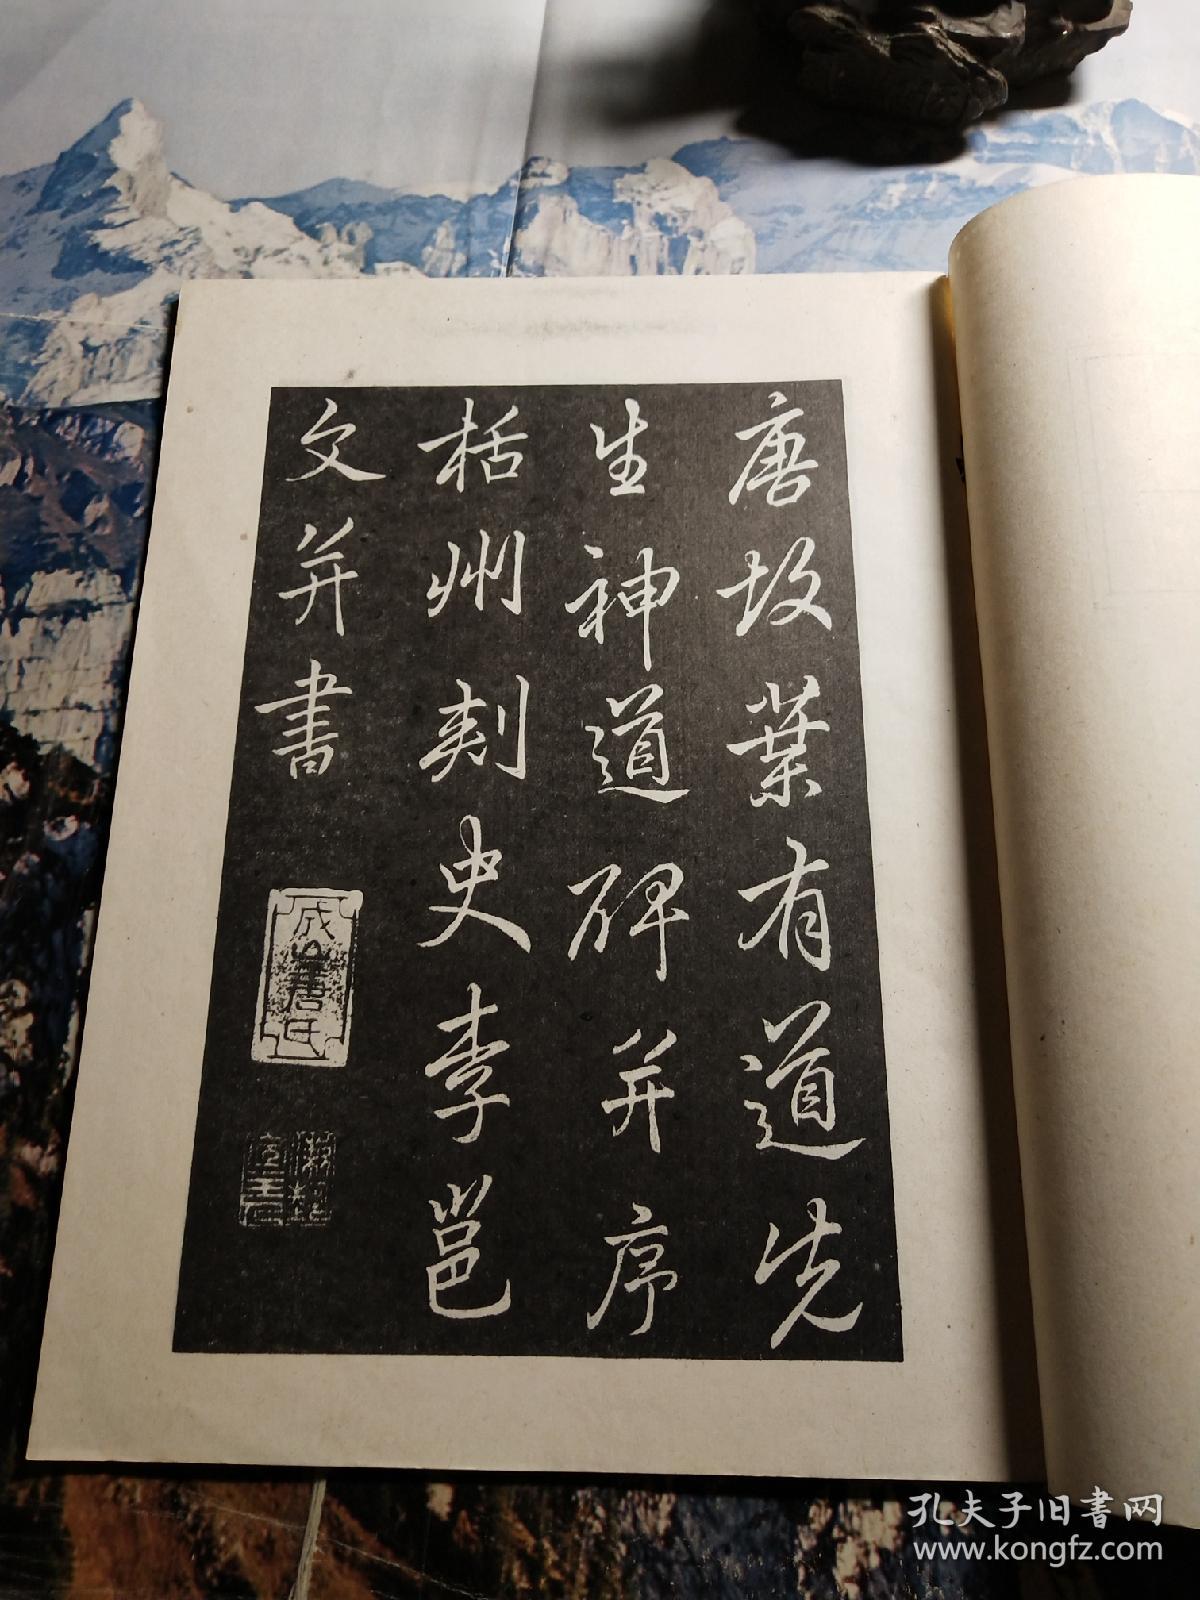 唐故葉有道先
生神道碑并序
栝州刺史李邕
文并書
孔夫子旧書网
www.kongfz.com